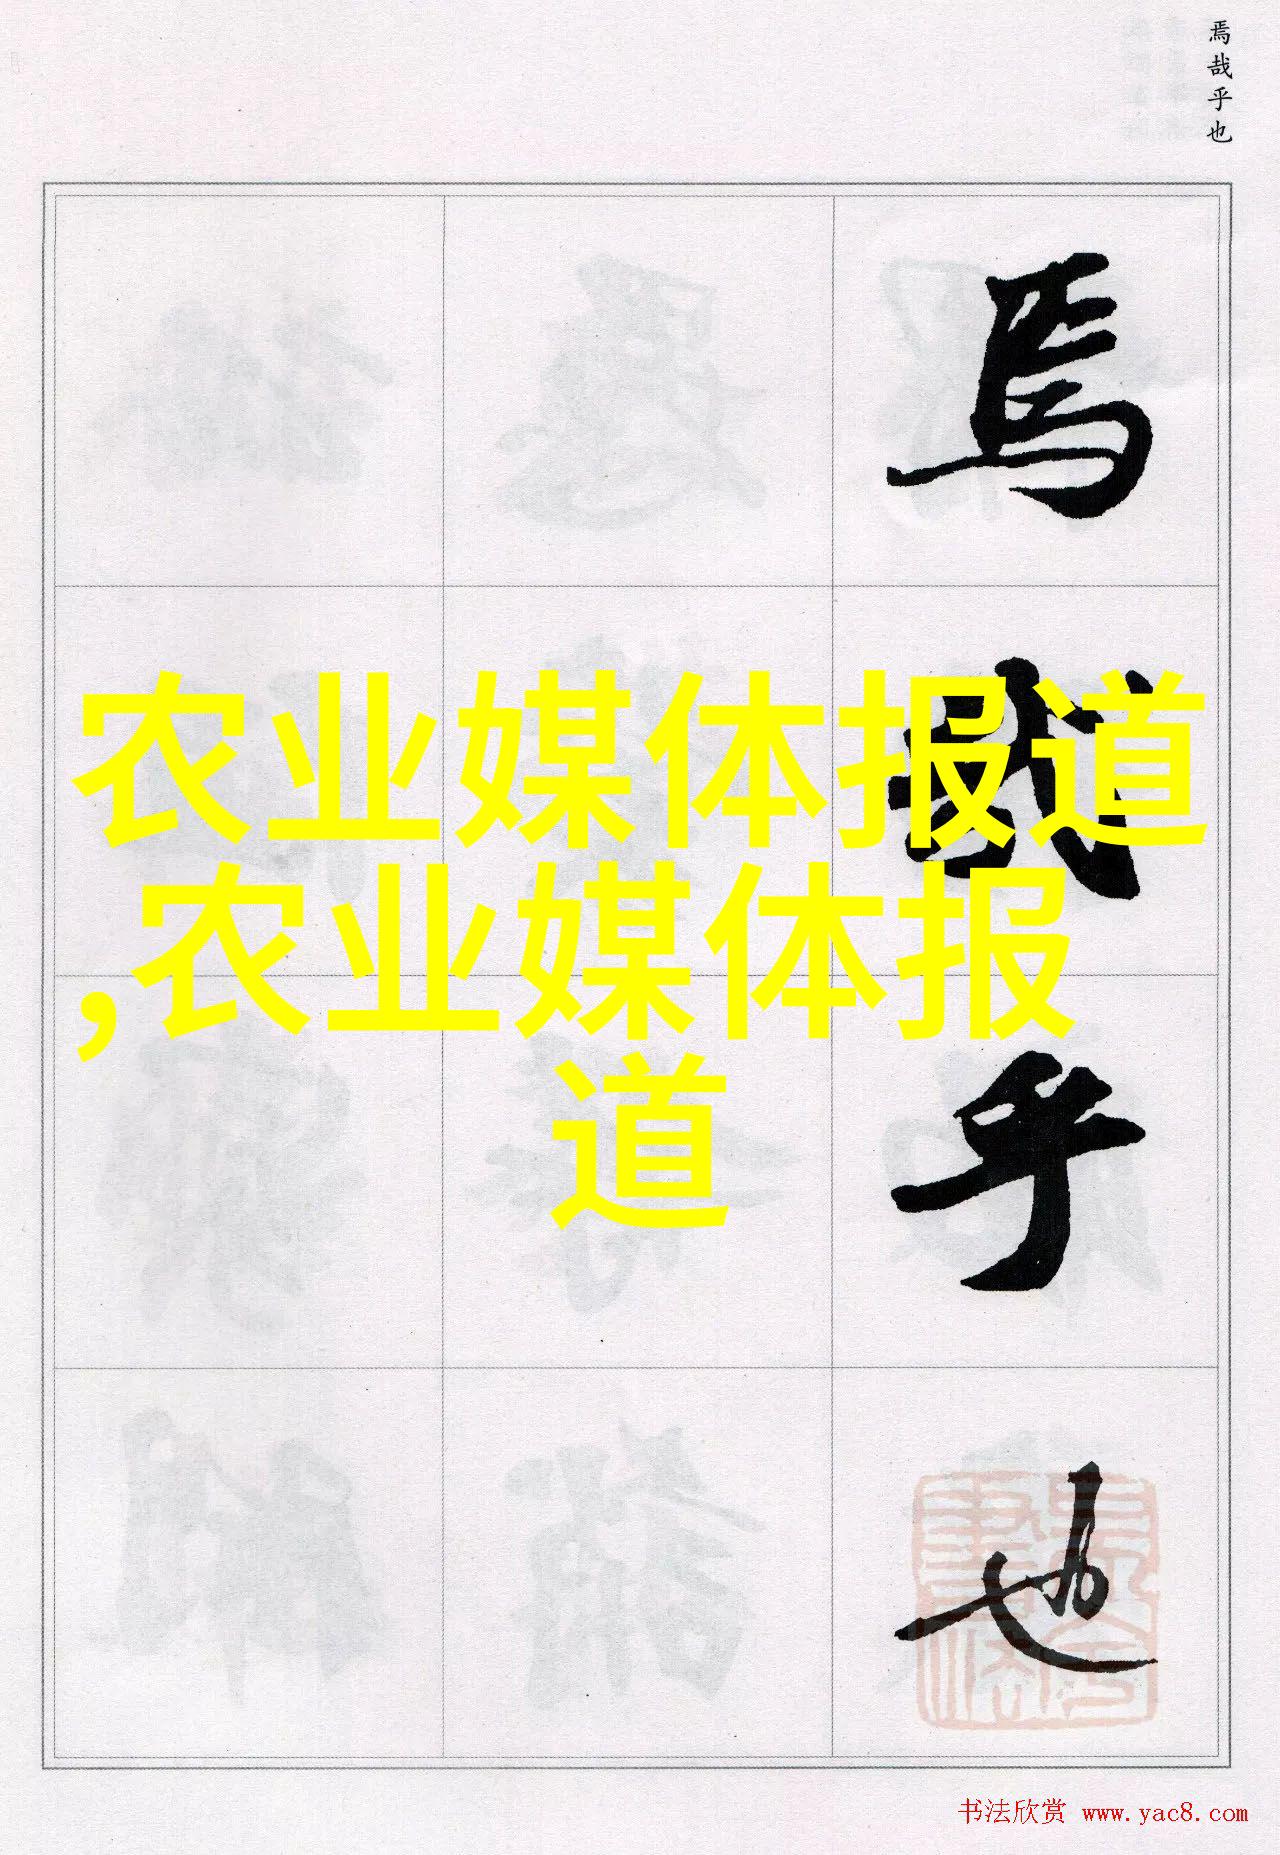 焉哉乎也
焉
哉
乎
也
农业媒体报道
,农业媒体报
道
书法欣赏 www.yac8.com